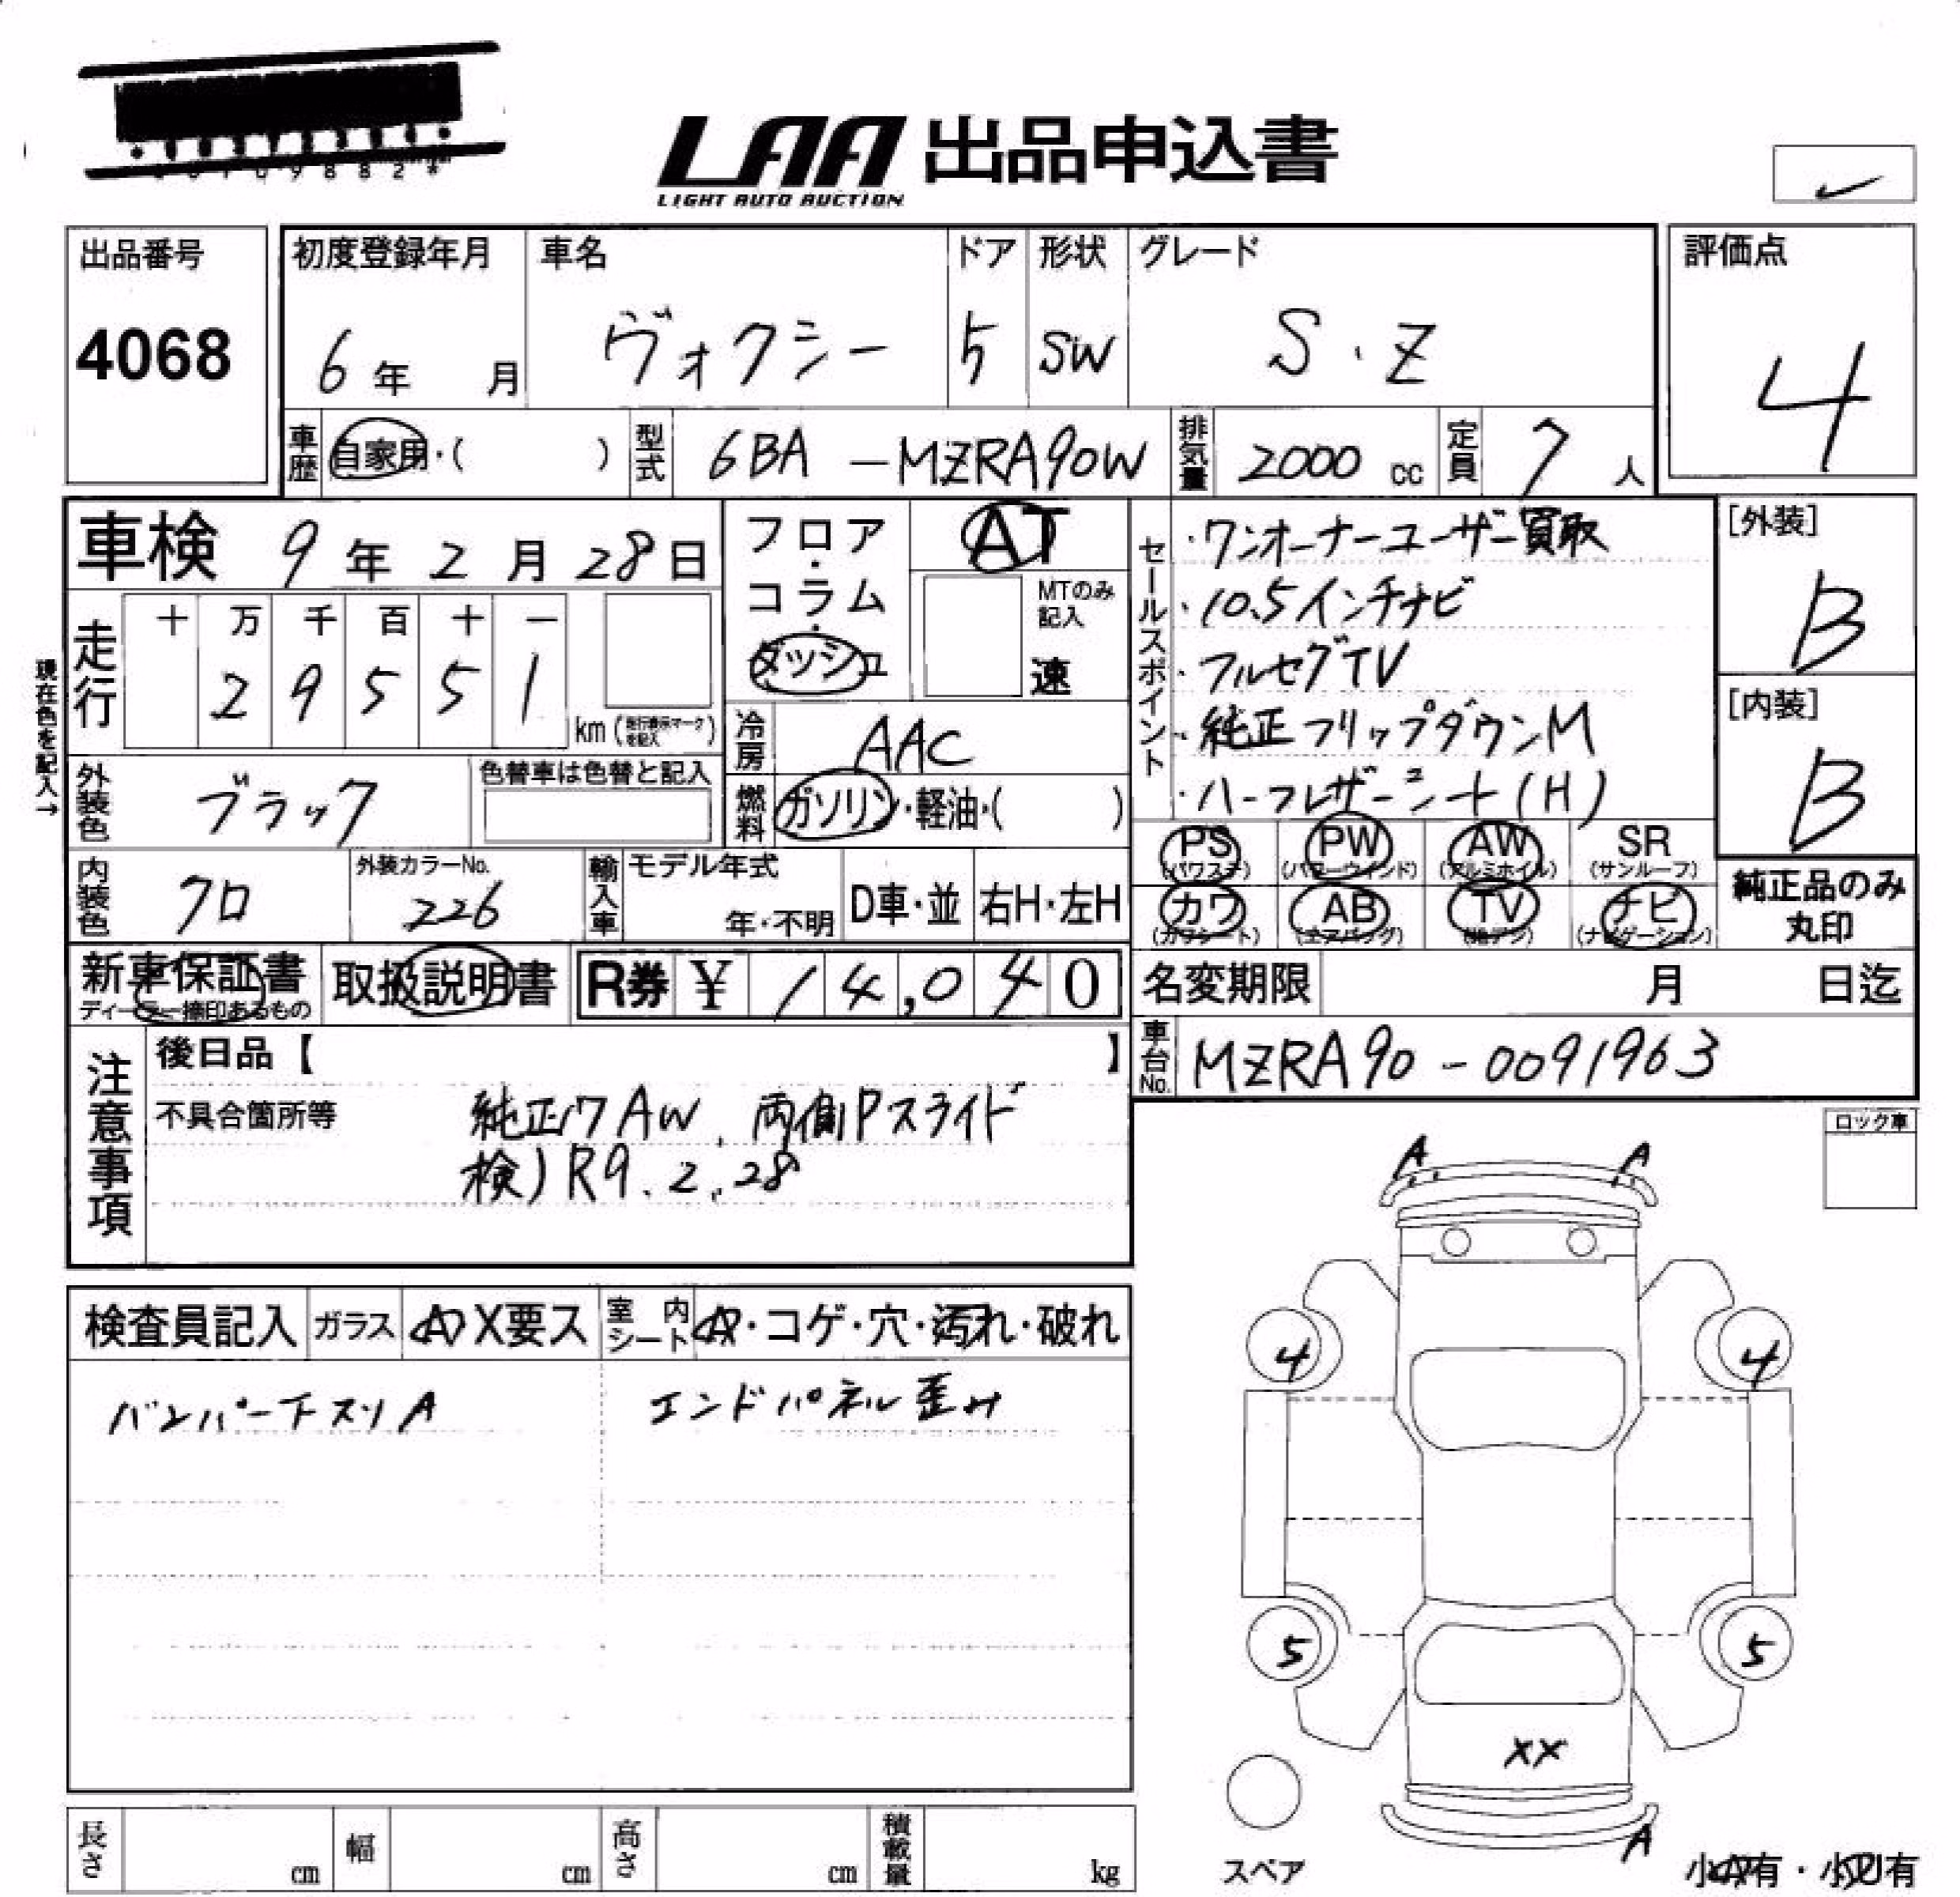 LAA 出品申込書
LIGHT AUTO AUCTION
出品番号
4068
初度登録年月
6年 月
車名
ヴォクシー
ドア
5
形状
SW
グレード
S・Z
評価点
4
車歴 自家用・( )
型式 6BA-MZRA90W
排気量 2000 cc
定員 7 人
車検 9年 2月 28日
現在色を記入→
走行 十 万 千 百 十 一
2 9 5 5 1
km (走行表示マークを記入)
フロア・コラム・ダッシュ
AT
MTのみ記入
速
冷房 AAC
燃料 ガソリン・軽油・( )
外装色 ブラック
色替車は色替と記入
内装色 クロ
外装カラーNo. 226
輸入車 モデル年式
年・不明
D車・並 右H・左H
セールスポイント
・ワンオーナーユーザー買取
・10.5インチナビ
・フルセグTV
・純正フリップダウンM
・ハーフレザーシート(H)
[外装]
B
[内装]
B
PS (パワステ)
PW (パワーウインド)
AW (アルミホイル)
SR (サンルーフ)
カワ (カワシート)
AB (エアバッグ)
TV
ナビ (ナビゲーション)
純正品のみ
丸印
新車保証書
ディーラー捺印あるもの
取扱説明書
R券 ¥ 14,040
名変期限 月 日迄
車台No. MZRA90-0091963
注意事項
後日品【 】
不具合箇所等
純正17AW、両側Pスライド
検)R9.2.28
ロック車
検査員記入 ガラス A X要ス
室内シート A・コゲ・穴・汚れ・破れ
バンパー下スリA
エンドパネル歪み
A A
4 4
5 5
XX
A
スペア
小A有・小U有
長さ cm
幅 cm
高さ cm
積載量 kg